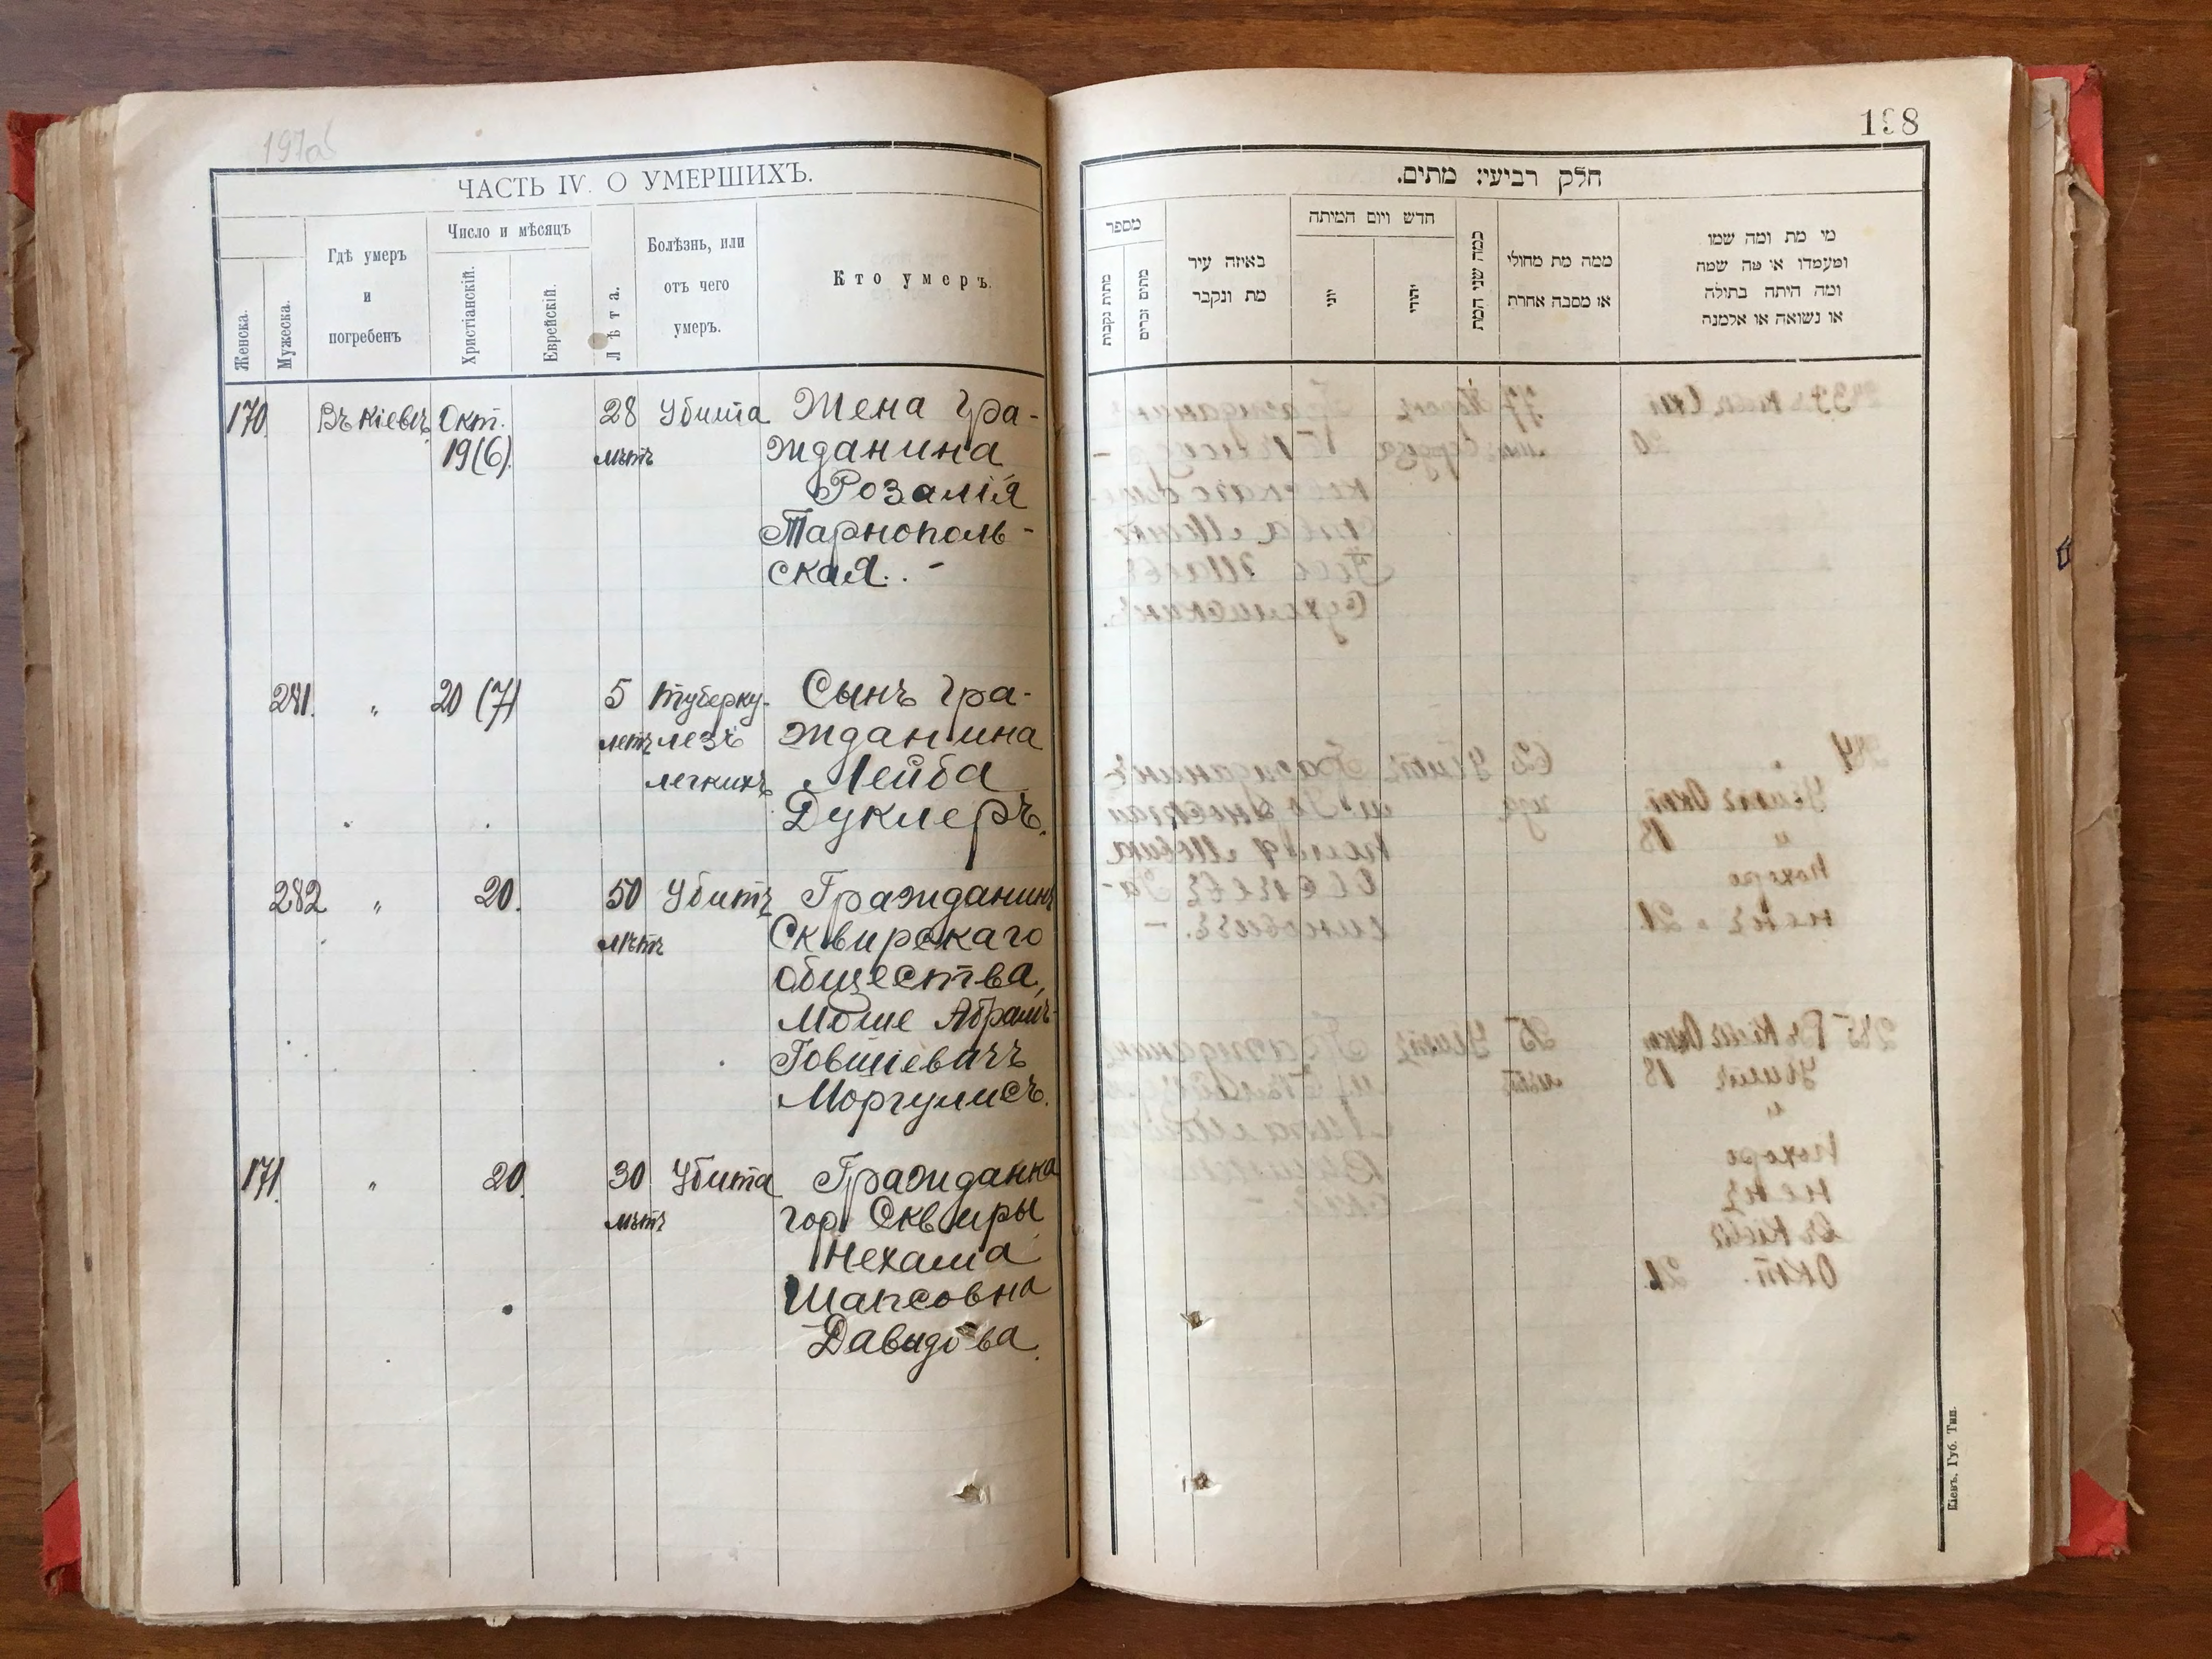 197об
ЧАСТЬ IV. О УМЕРШИХЪ.
Женска.
Мужеска.
Гдѣ умеръ
и
погребенъ
Число и мѣсяцъ
Христіанскій.
Еврейскій.
Лѣта.
Болѣзнь, или
отъ чего
умеръ.
Кто умеръ.
170 Въ Кіевѣ Окт. 28 Убита Жена гра-
19(6). лѣтъ жданина
Розалія
Тарнополь-
ская. -
281. " 20 (7) 5 туберку- Сынъ гра-
летъ лезъ жданина
легкихъ Лейба
Дуклеръ.
282 " 20. 50 Убитъ Гражданинъ
лѣтъ Сквирскаго
общества,
Моше Абрамъ-
Говшіевичъ
Моргулисъ.
171. " 20. 30 Убита Гражданка
лѣтъ гор. Сквиры
Нехама
Шапсовна
Давидова.
198
חלק רביעי: מתים.
מספר
מתות נקבות
מתים זכרים
באיזה עיר
מת ונקבר
חדש ויום המיתה
יוני
יהודי
כמה שני המת
ממה מת מחולי
או מסבה אחרת
מי מת ומה שמו
ומעמדו או מה שמה
ומה היתה בתולה
או נשואה או אלמנה
Кіевъ, Губ. Тип.